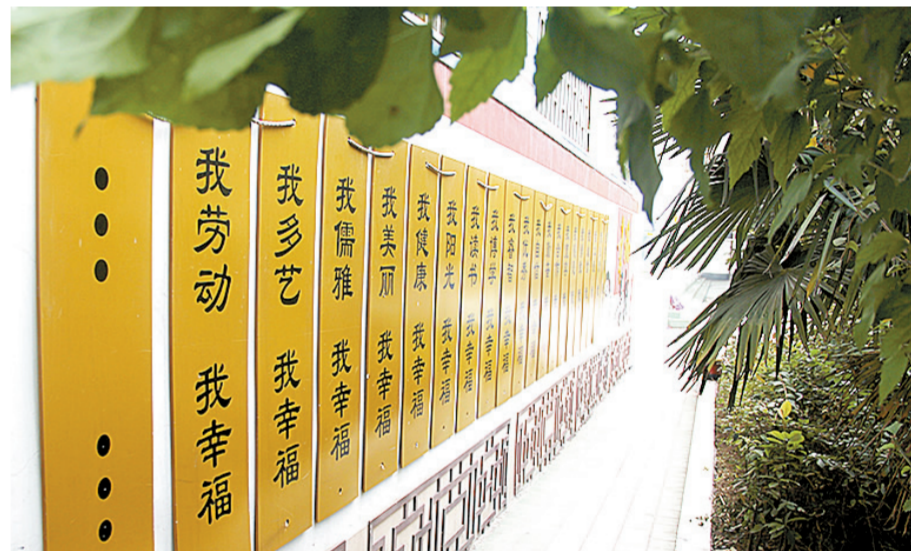 ● ● ● ● ● ●
我劳动 我幸福
我多艺 我幸福
我儒雅 我幸福
我美丽 我幸福
我健康 我幸福
我阳光 我幸福
我读书 我幸福
我博学 我幸福
我睿智 我幸福
我优秀 我幸福